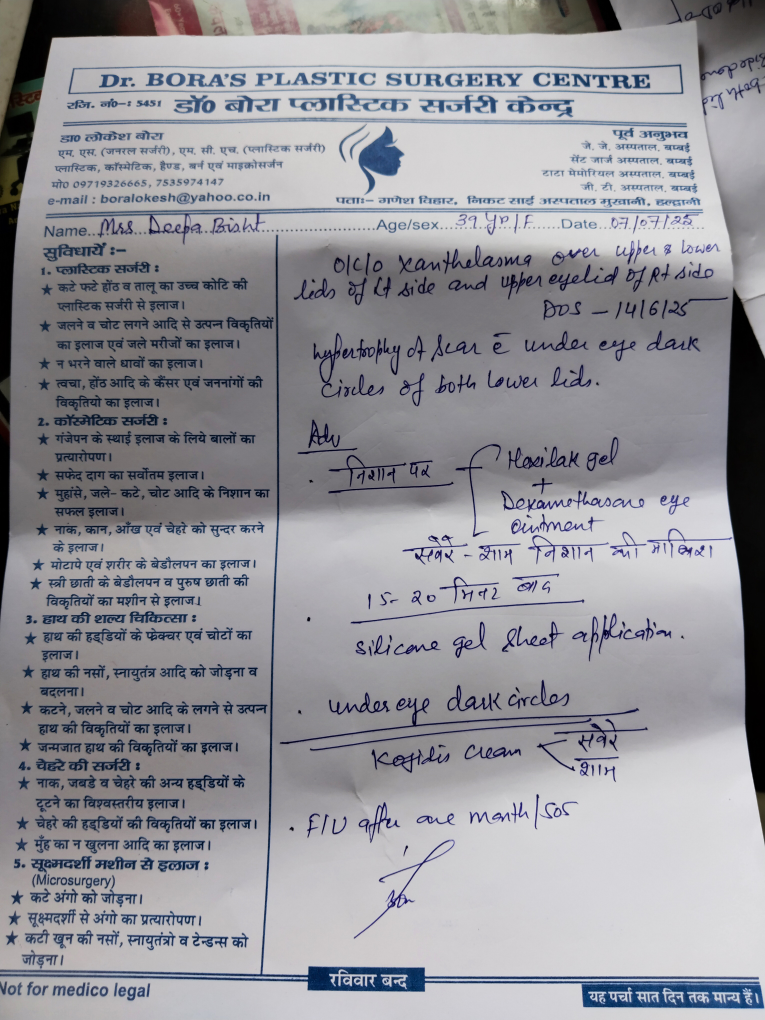 Dr. BORA'S PLASTIC SURGERY CENTRE
रजि. नं०-: 5451 डॉ० बोरा प्लास्टिक सर्जरी केन्द्र
डा० लोकेश बोरा
एम. एस. (जनरल सर्जरी), एम. सी. एच. (प्लास्टिक सर्जरी)
प्लास्टिक, कॉस्मेटिक, हैण्ड, बर्न एवं माइक्रोसर्जन
मो० 09719326665, 7535974147
e-mail : boralokesh@yahoo.co.in
पूर्व अनुभव
जे. जे. अस्पताल, बम्बई
सेंट जार्ज अस्पताल, बम्बई
टाटा मेमोरियल अस्पताल, बम्बई
जी. टी. अस्पताल, बम्बई
पता:- गणेश विहार, निकट साई अस्पताल मुखानी, हल्द्वानी
Name Mrs Deepa Bisht Age/sex 39 yr/F Date 07/07/25
सुविधायें :-
1. प्लास्टिक सर्जरी :
★ कटे फटे होंठ व तालू का उच्च कोटि की
प्लास्टिक सर्जरी से इलाज।
★ जलने व चोट लगने आदि से उत्पन्न विकृतियों
का इलाज एवं जले मरीजों का इलाज।
★ न भरने वाले धावों का इलाज।
★ त्वचा, होंठ आदि के कैंसर एवं जननांगों की
विकृतियो का इलाज।
2. कॉस्मेटिक सर्जरी :
★ गंजेपन के स्थाई इलाज के लिये बालों का
प्रत्यारोपण।
★ सफेद दाग का सर्वोतम इलाज।
★ मुहांसे, जले- कटे, चोट आदि के निशान का
सफल इलाज।
★ नाक, कान, आँख एवं चेहरे को सुन्दर करने
के इलाज।
★ मोटापे एवं शरीर के बेडौलपन का इलाज।
★ स्त्री छाती के बेडौलपन व पुरुष छाती की
विकृतियों का मशीन से इलाज।
3. हाथ की शल्य चिकित्सा :
★ हाथ की हड्डियों के फ्रेक्चर एवं चोटों का
इलाज।
★ हाथ की नसों, स्नायुतंत्र आदि को जोड़ना व
बदलना।
★ कटने, जलने व चोट आदि के लगने से उत्पन्न
हाथ की विकृतियों का इलाज।
★ जन्मजात हाथ की विकृतियों का इलाज।
4. चेहरे की सर्जरी :
★ नाक, जबडे व चेहरे की अन्य हड्डियों के
टूटने का विश्वस्तरीय इलाज।
★ चेहरे की हड्डियों की विकृतियों का इलाज।
★ मुँह का न खुलना आदि का इलाज।
5. सूक्ष्मदर्शी मशीन से इलाज :
(Microsurgery)
★ कटे अंगो को जोड़ना।
★ सूक्ष्मदर्शी से अंगो का प्रत्यारोपण।
★ कटी खून की नसों, स्नायुतंत्रो व टेन्डन्स को
जोड़ना।
O/C/O Xanthelasma over upper & lower
lids of Lt side and upper eyelid of Rt side
DOS - 14/6/25
hypertrophy of scar c̄ under eye dark
circles of both lower lids.
Adv
. निशान पर Hexilak gel
+
Dexamethasone eye
ointment
सवेरे - शाम निशान की मालिश
15-20 मिनट बाद
. silicone gel sheet application.
. under eye dark circles
Kojidis cream सवेरे
शाम
. F/U after one month/SOS
रविवार बन्द
Not for medico legal
यह पर्चा सात दिन तक मान्य हैं।